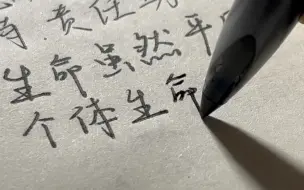 责任
生命虽然平
个体生命